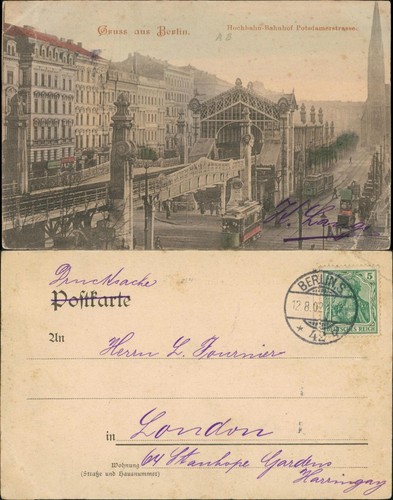 Gruss aus Berlin.
Hochbahn-Bahnhof Potsdamerstrasse.
Drucksache
Postkarte
An
Herrn L. Fournier
in London
Wohnung 64 Stanhope Gardens
(Straße und Hausnummer)
Harringay
BERLIN S.
12.8.03
* 42 d
5
DEUTSCHES REICH